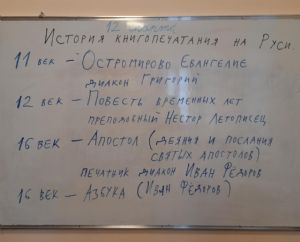 12 марта
История книгопечатания на Руси.
11 век – Остромирово Евангелие
диакон Григорий
12 век – Повесть временных лет
преподобный Нестор Летописец
16 век – Апостол (деяния и послания
святых апостолов)
печатник диакон Иван Фёдоров
16 век – Азбука (Иван Фёдоров)